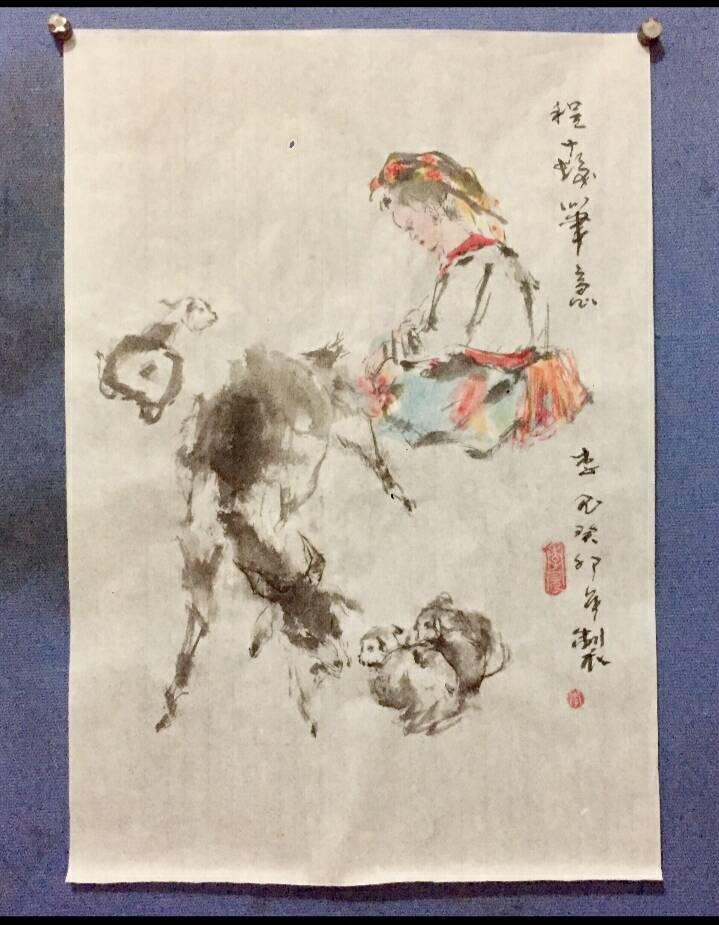 程十發筆意
李癸卯年製